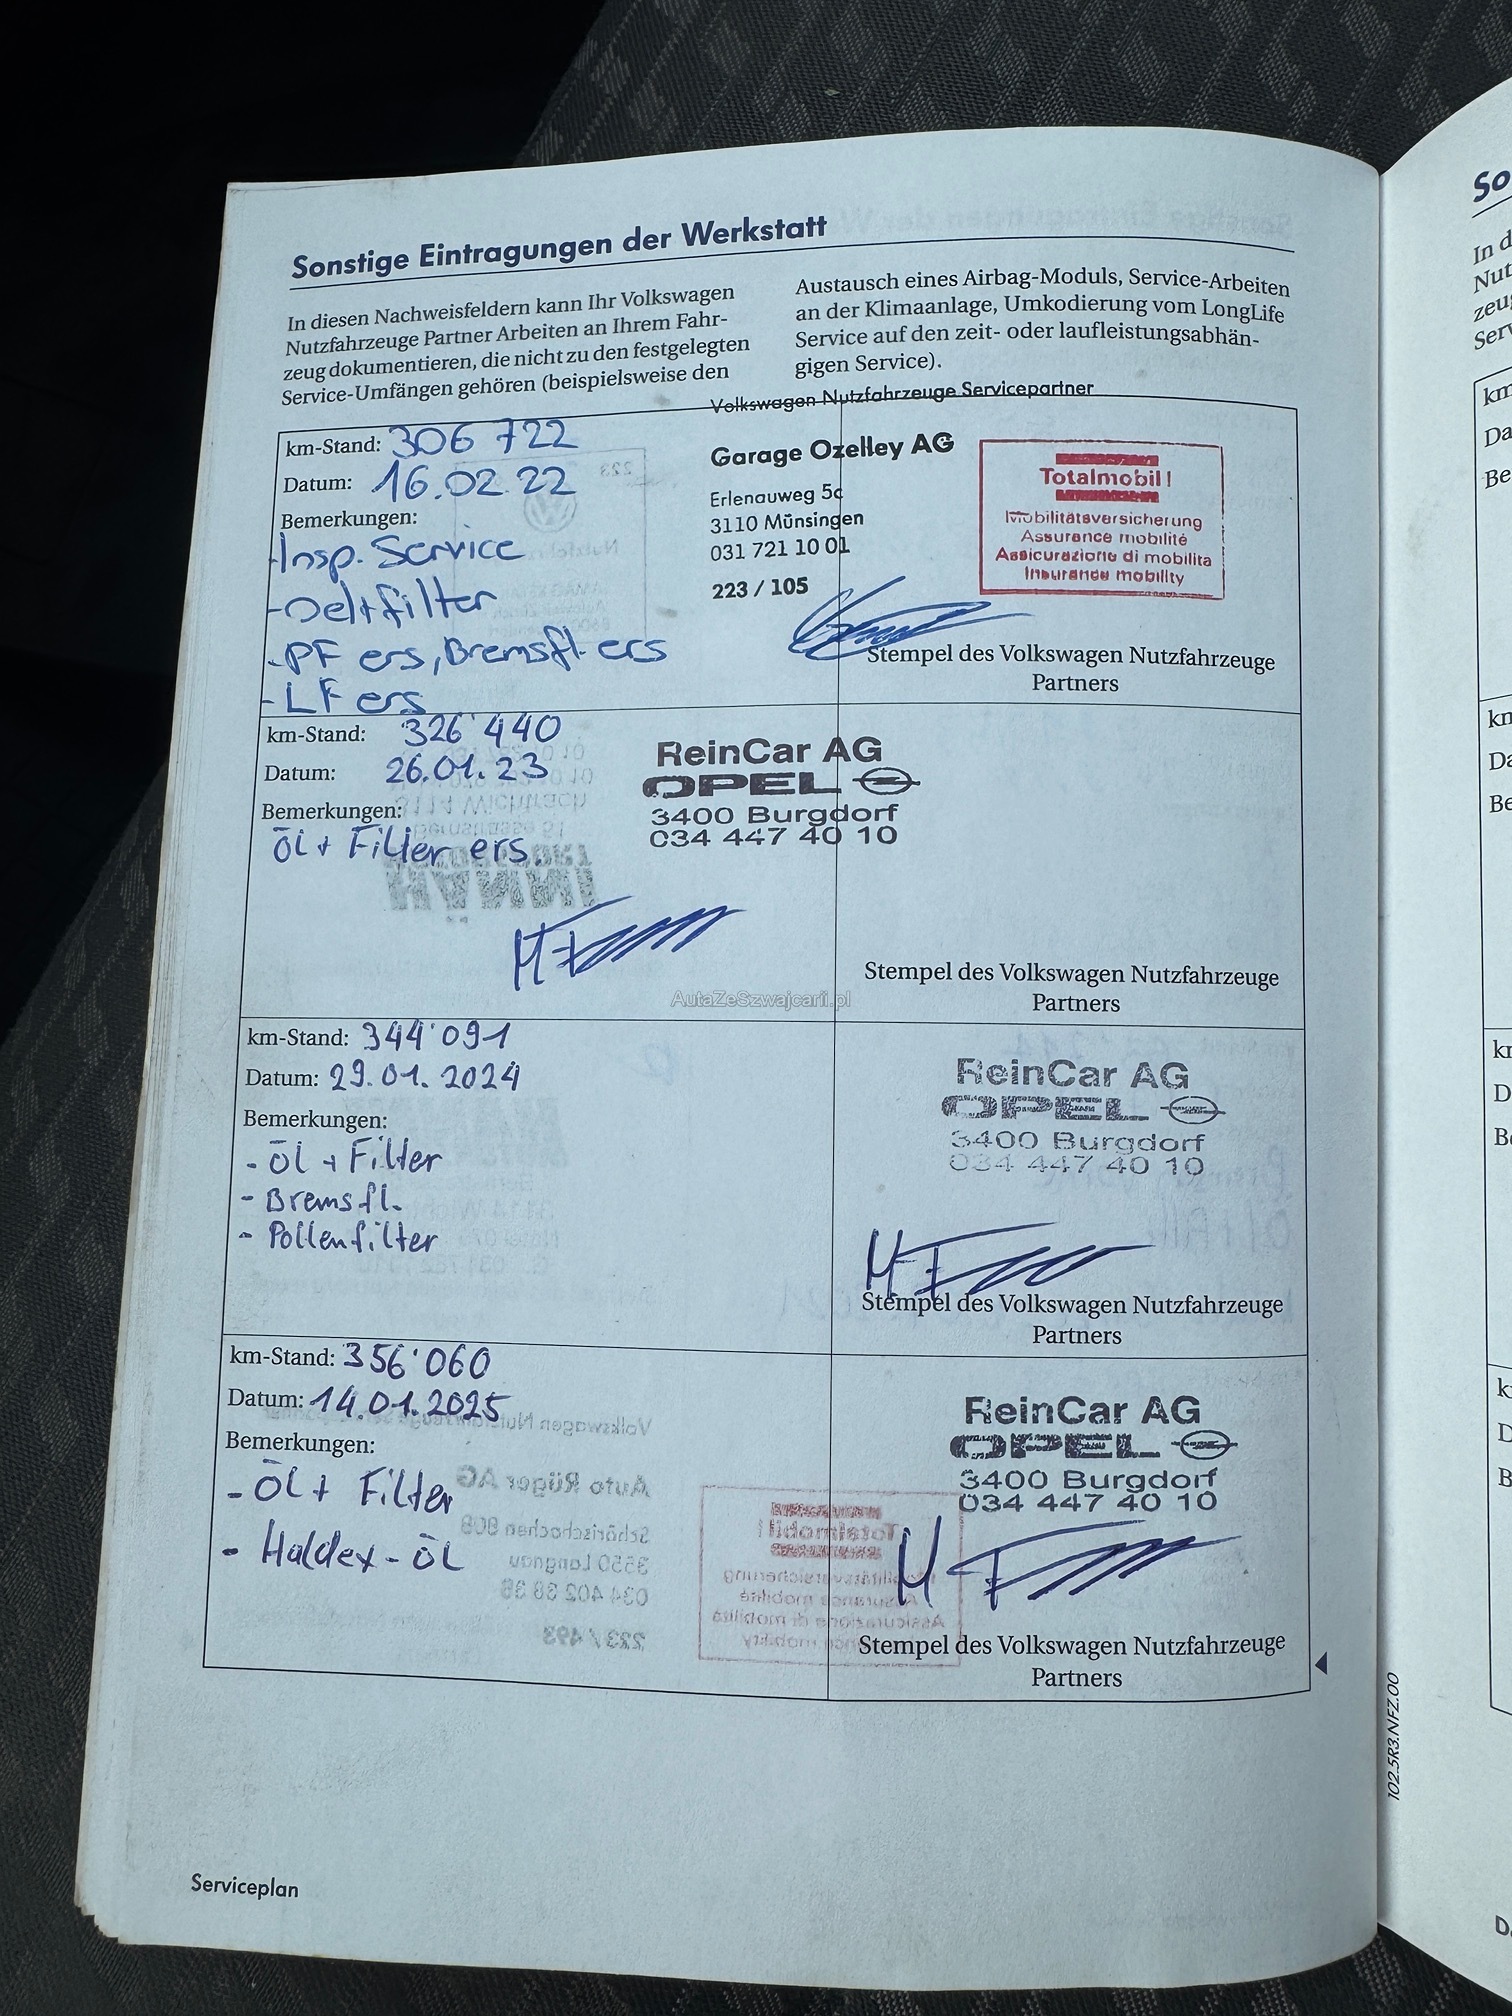 Sonstige Eintragungen der Werkstatt
In diesen Nachweisfeldern kann Ihr Volkswagen
Nutzfahrzeuge Partner Arbeiten an Ihrem Fahr-
zeug dokumentieren, die nicht zu den festgelegten
Service-Umfängen gehören (beispielsweise den
Austausch eines Airbag-Moduls, Service-Arbeiten
an der Klimaanlage, Umkodierung vom LongLife
Service auf den zeit- oder laufleistungsabhän-
gigen Service).
km-Stand: 306 722
Datum: 16.02.22
Bemerkungen:
-Insp. Service
-Oel+filter
-PF ers, Bremsfl. ers
-LF ers
Volkswagen Nutzfahrzeuge Servicepartner
Garage Ozelley AG
Erlenauweg 5c
3110 Münsingen
031 721 10 01
223 / 105
Totalmobil!
Mobilitätsversicherung
Assurance mobilité
Assicurazione di mobilita
Insurance mobility
Stempel des Volkswagen Nutzfahrzeuge
Partners
km-Stand: 326'440
Datum: 26.01.23
Bemerkungen:
Öl + Filter ers.
ReinCar AG
OPEL
3400 Burgdorf
034 447 40 10
Stempel des Volkswagen Nutzfahrzeuge
Partners
AutaZeSzwajcarii.pl
km-Stand: 344'091
Datum: 29.01.2024
Bemerkungen:
- Öl + Filter
- Bremsfl.
- Pollenfilter
ReinCar AG
OPEL
3400 Burgdorf
034 447 40 10
Stempel des Volkswagen Nutzfahrzeuge
Partners
km-Stand: 356'060
Datum: 14.01.2025
Bemerkungen:
- Öl + Filter
- Haldex-Öl
ReinCar AG
OPEL
3400 Burgdorf
034 447 40 10
Stempel des Volkswagen Nutzfahrzeuge
Partners
102.5R3.NFZ.00
Serviceplan